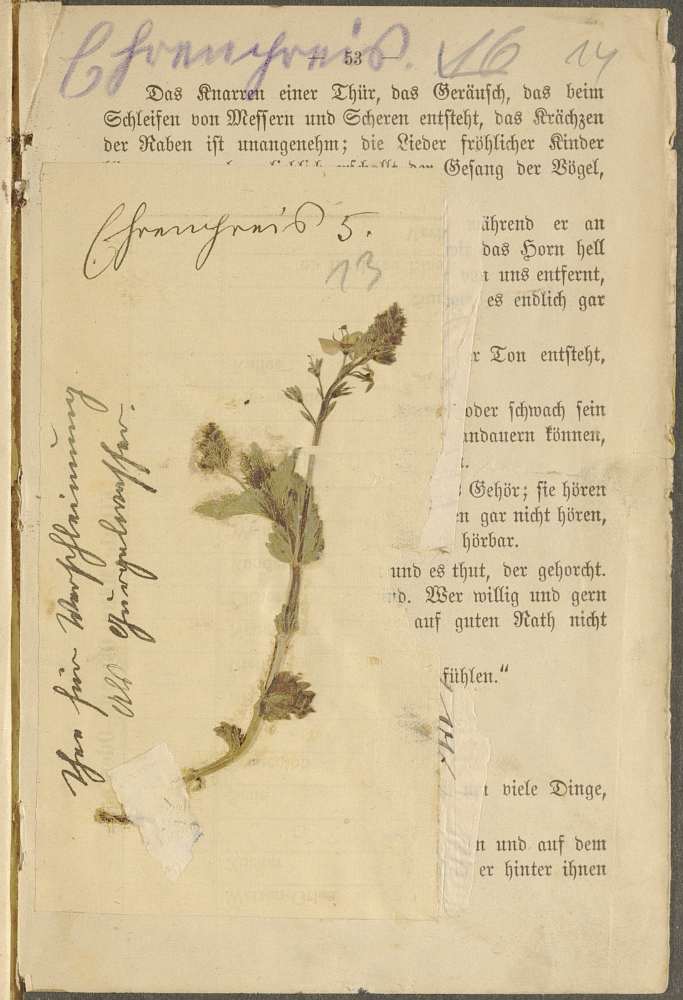 Ehrenpreis. 16 14
— 53 —
Das Knarren einer Thür, das Geräusch, das beim
Schleifen von Messern und Scheren entsteht, das Krächzen
der Raben ist unangenehm; die Lieder fröhlicher Kinder
erschallt der Gesang der Vögel,
Ehrenpreis 5.
13
während er an
das Horn hell
uns entfernt,
es endlich gar
Ton entsteht,
oder schwach sein
andauern können,
Gehör; sie hören
gar nicht hören,
hörbar.
und es thut, der gehorcht.
Wer willig und gern
auf guten Rath nicht
fühlen.“
viele Dinge,
und auf dem
er hinter ihnen
Thee für Verschleimung
als Gurgelwasser.